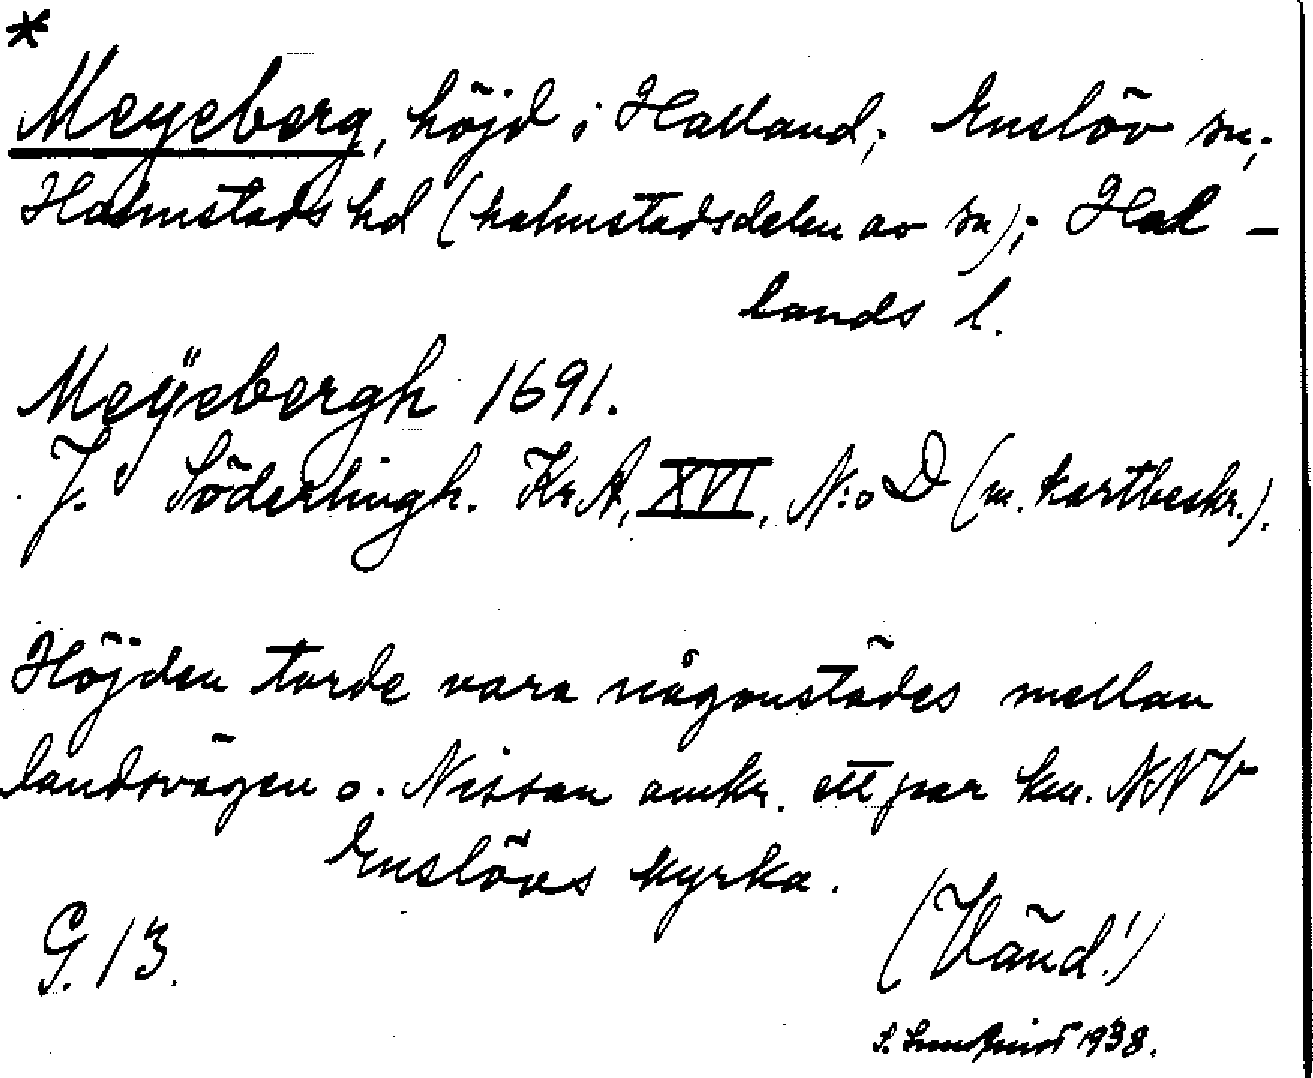 *
Meyeberg, höjd i Halland; Enslöv sn;
Halmstads hd (halmstadsdelen av sn); Hal-
lands l.
Meÿebergh 1691.
J. Söderlingh. Kr.A, XVI, N:o D (m. kartbeskr.).
Höjden torde vara någonstädes mellan
landsvägen o. Nissan omkr. ett par km. NNV
Enslövs kyrka.
G. 13.
(Vänd!)
1938.